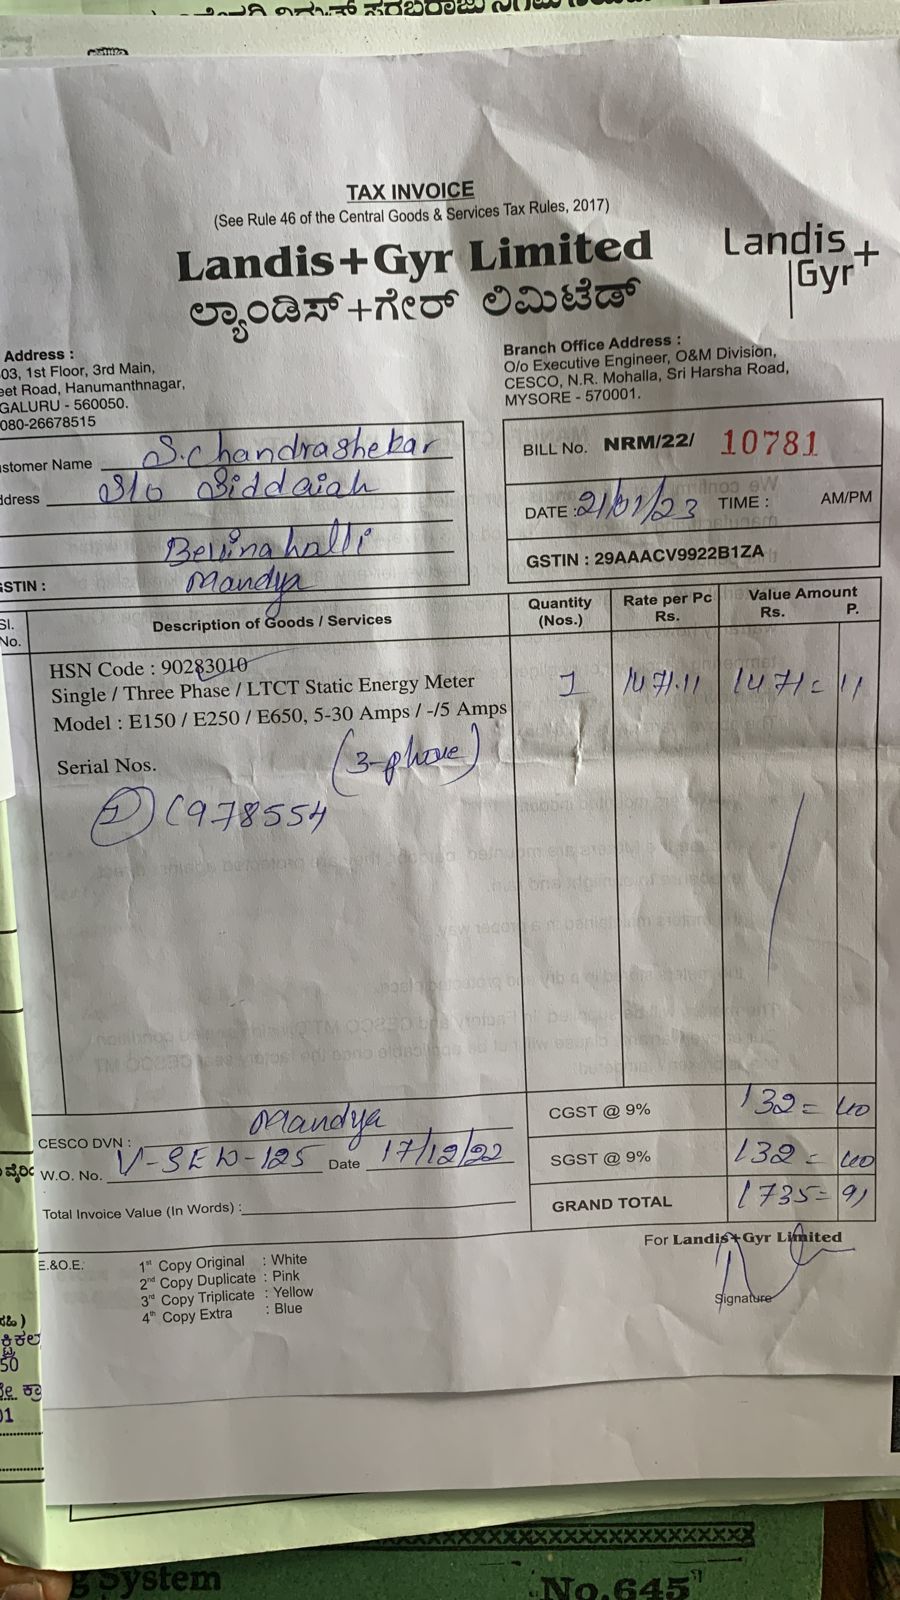 TAX INVOICE
(See Rule 46 of the Central Goods & Services Tax Rules, 2017)
Landis+Gyr Limited
ಲ್ಯಾಂಡಿಸ್+ಗೇರ್ ಲಿಮಿಟೆಡ್
Landis
Gyr+
Address :
03, 1st Floor, 3rd Main,
eet Road, Hanumanthnagar,
GALURU - 560050.
080-26678515
Branch Office Address :
O/o Executive Engineer, O&M Division,
CESCO, N.R. Mohalla, Sri Harsha Road,
MYSORE - 570001.
stomer Name S.Chandrashekar
ddress S/o Siddaiah
Mandya
GSTIN :
BILL No. NRM/22/ 10781
DATE : 21/01/23 TIME : AM/PM
GSTIN : 29AAACV9922B1ZA
Sl. No. Description of Goods / Services Quantity (Nos.) Rate per Pc Rs. Value Amount Rs. P.
HSN Code : 90283010
Single / Three Phase / LTCT Static Energy Meter 1 1471.11 1471= 11
Model : E150 / E250 / E650, 5-30 Amps / -/5 Amps
Serial Nos. (3-phase)
978554
CGST @ 9% 132= 40
CESCO DVN : Mandya
SGST @ 9% 132= 40
W.O. No. V-SEW-125 Date 17/12/22
GRAND TOTAL 1735= 91
Total Invoice Value (In Words) :
For Landis+Gyr Limited
E.&O.E.
1st Copy Original : White
2nd Copy Duplicate : Pink
3rd Copy Triplicate : Yellow
4th Copy Extra : Blue
Signature
g System
No.645